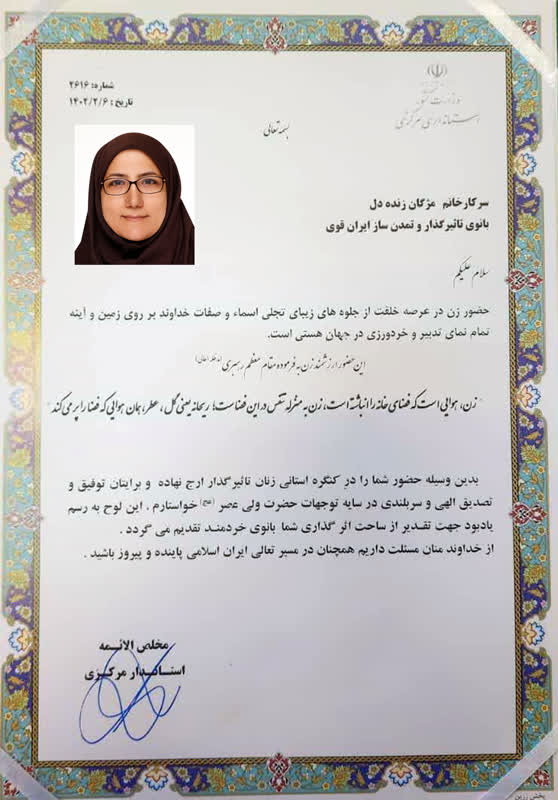 شماره: ۲۶۱۶
تاریخ: ۱۴۰۲/۲/۶
وزارت کشور
استانداری مرکزی
بسمه تعالی
سرکار خانم مژگان زنده دل
بانوی تاثیرگذار و تمدن ساز ایران قوی
سلام علیکم
حضور زن در عرصه خلقت از جلوه های زیبای تجلی اسماء و صفات خداوند بر روی زمین و آینه
تمام نمای تدبیر و خردورزی در جهان هستی است.
این حضور ارزشمند زن به فرموده مقام معظم رهبری (مدظله العالی)
" زن، هوایی است که فضای خانه را انباشته است، زن به منزله تنفس در این فضاست؛ ریحانه یعنی گل، عطر، همان هوایی که فضا را پر می کند "
بدین وسیله حضور شما را در کنگره استانی زنان تاثیرگذار ارج نهاده و برایتان توفیق و
تصدیق الهی و سربلندی در سایه توجهات حضرت ولی عصر (عج) خواستارم . این لوح به رسم
یادبود جهت تقدیر از ساحت اثر گذاری شما بانوی خردمند تقدیم می گردد .
از خداوند منان مسئلت داریم همچنان در مسیر تعالی ایران اسلامی پاینده و پیروز باشید .
مخلص الائمه
استاندار مرکزی